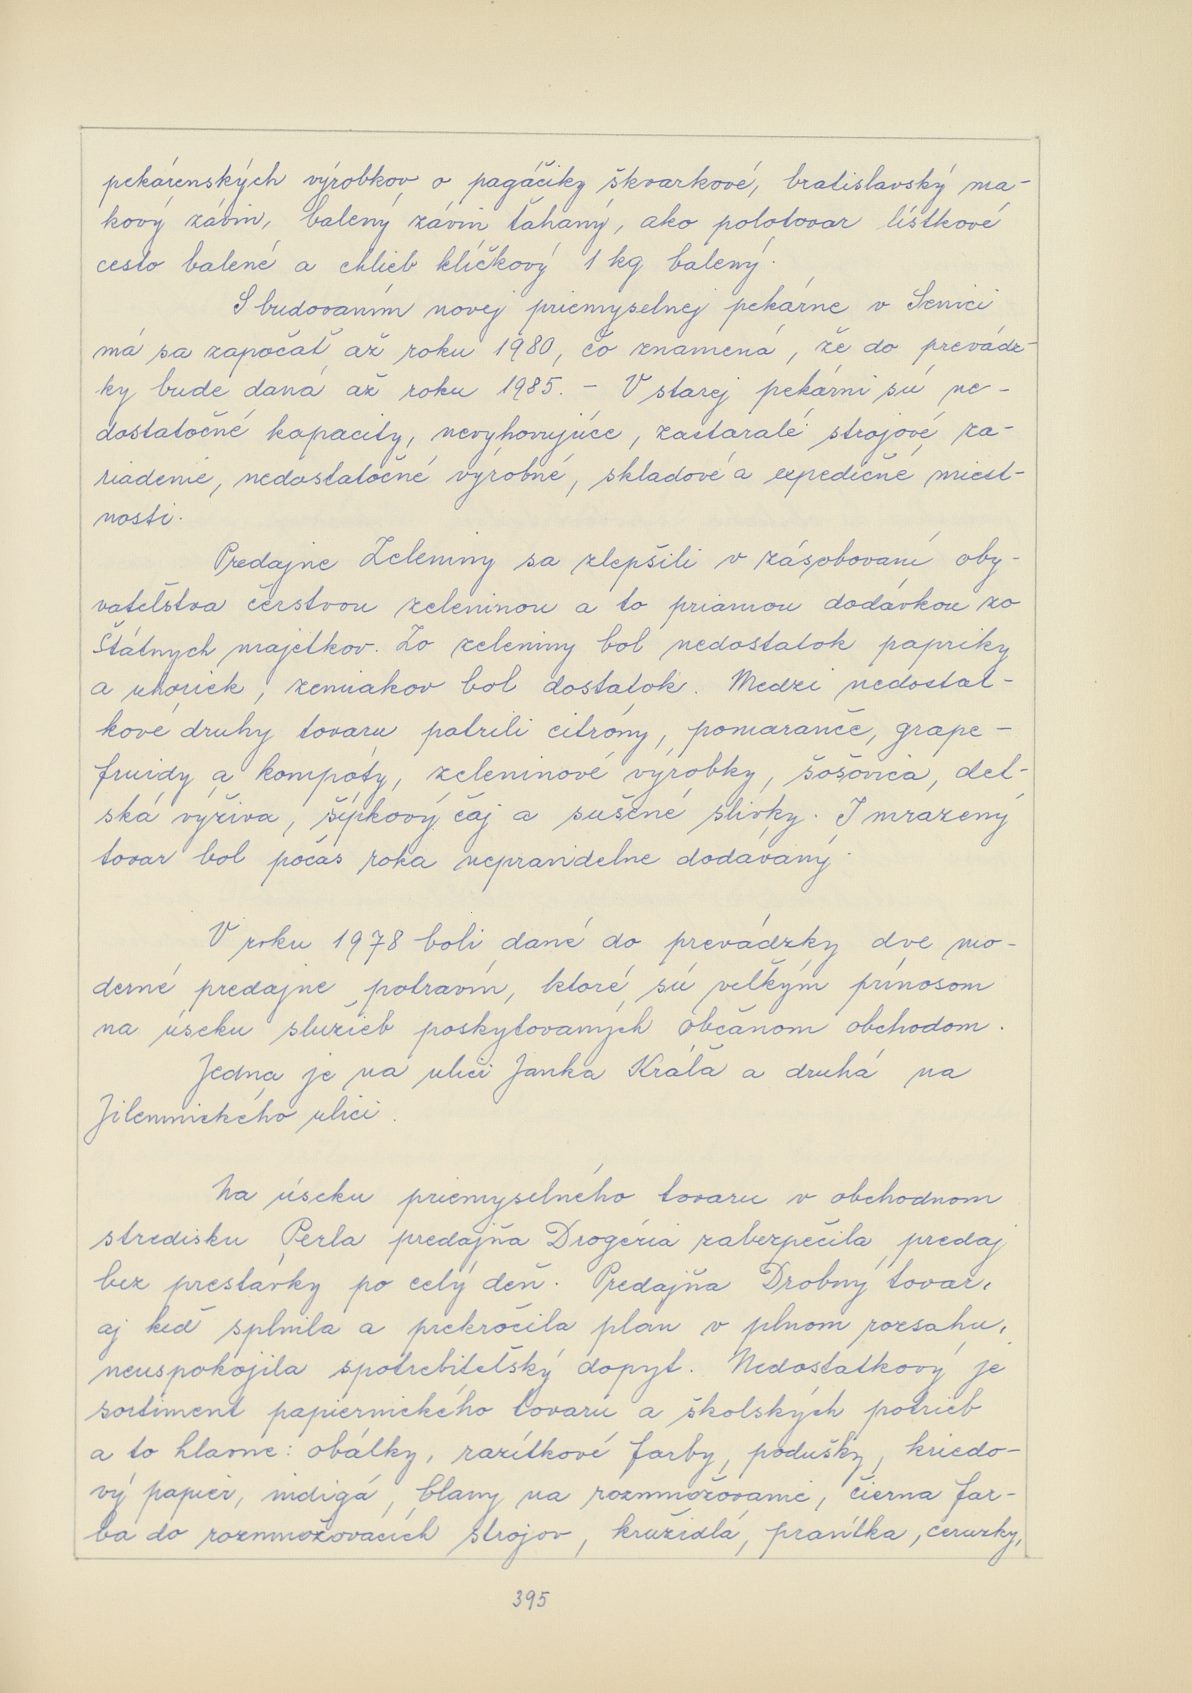 pekárenských výrobkov o pagáčiky škvarkové, bratislavský ma-
kový závin, balený závin ťahaný, ako polotovar lístkové
cesto balené a chlieb klíčkový 1 kg balený.
S budovaním novej priemyselnej pekárne v Senici
má sa započať až roku 1980, čo znamená, že do prevádz-
ky bude daná až roku 1985. - V starej pekárni sú ne-
dostatočné kapacity, nevyhovujúce, zastaralé strojové za-
riadenie, nedostatočné výrobné, skladové a expedičné miest-
nosti.
Predajne Zeleniny sa zlepšili v zásobovaní oby-
vateľstva čerstvou zeleninou a to priamou dodávkou zo
Štátnych majetkov. Zo zeleniny bol nedostatok papriky
a uhoriek, zemiakov bol dostatok. Medzi nedostat-
kové druhy tovaru patrili citróny, pomaranče, grape-
fruidy a kompóty, zeleninové výrobky, šošovica, det-
ská výživa, šípkový čaj a sušené slivky. I mrazený
tovar bol počas roka nepravidelne dodávaný.
V roku 1978 boli dané do prevádzky dve mo-
derné predajne potravín, ktoré sú veľkým prínosom
na úseku služieb poskytovaných občanom obchodom.
Jedna je na ulici Janka Kráľa a druhá na
Jilemnického ulici.
Na úseku priemyselného tovaru v obchodnom
stredisku Perla predajňa Drogéria zabezpečila predaj
bez prestávky po celý deň. Predajňa Drobný tovar,
aj keď splnila a prekročila plán v plnom rozsahu,
neuspokojila spotrebiteľský dopyt. Nedostatkový je
sortiment papiernického tovaru a školských potrieb
a to hlavne: obálky, razítkové farby, podušky, kriedo-
vý papier, indigá, blany na rozmnožovanie, čierna far-
ba do rozmnožovacích strojov, kružidlá, pravítka, ceruzky,
395